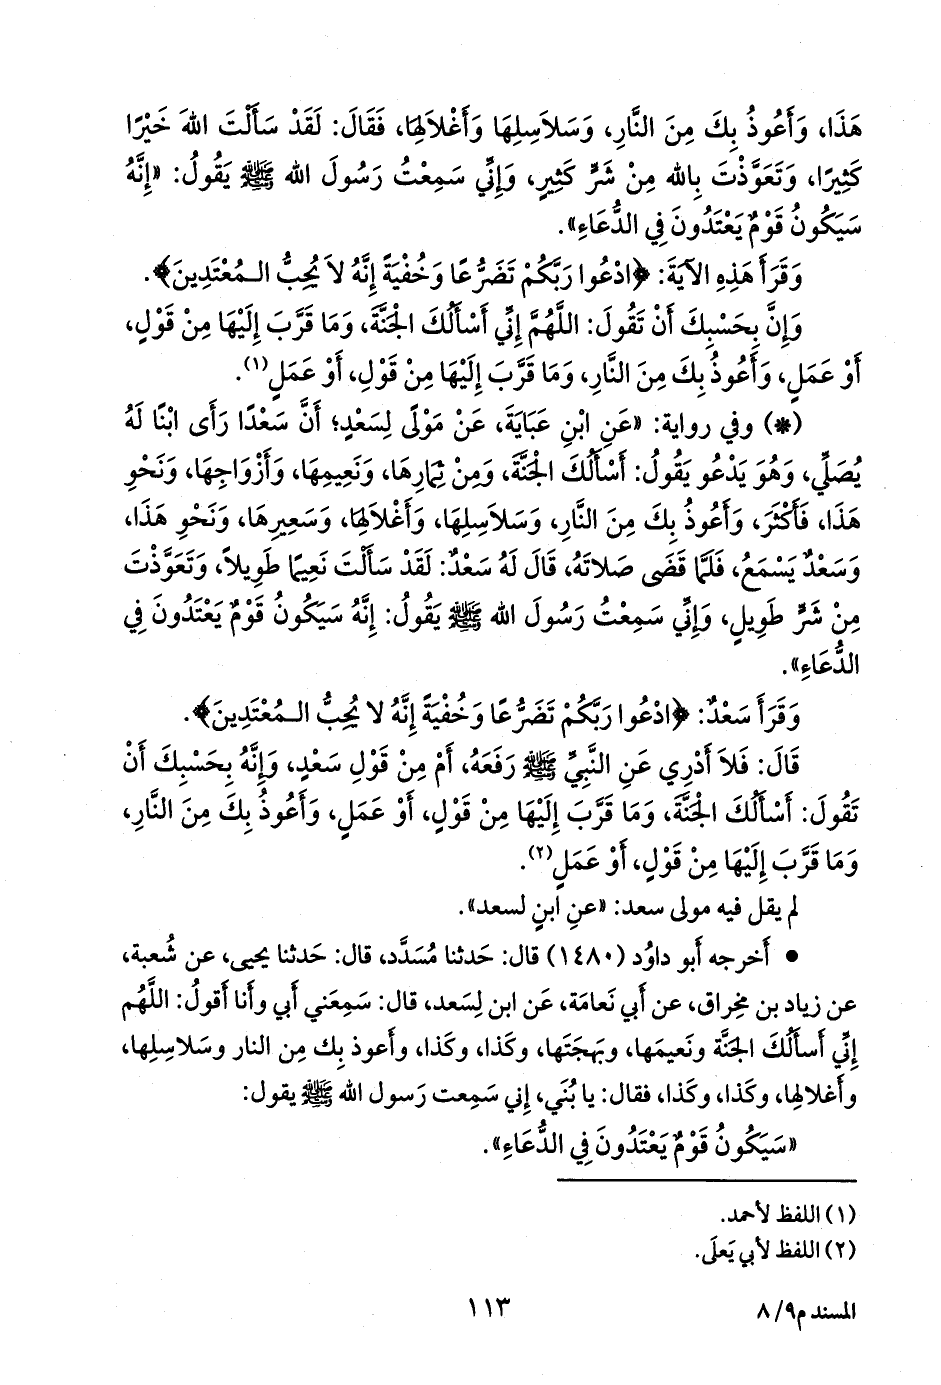 هَذَا، وَأَعُوذُ بِكَ مِنَ النَّارِ، وَسَلاَسِلِهَا وَأَغْلاَلِهَا، فَقَالَ: لَقَدْ سَأَلْتَ اللهَ خَيْرًا
كَثِيرًا، وَتَعَوَّذْتَ بِالله مِنْ شَرٍّ كَثِيرٍ، وَإِنِّي سَمِعْتُ رَسُولَ الله ﷺ يَقُولُ: «إِنَّهُ
سَيَكُونُ قَوْمٌ يَعْتَدُونَ فِي الدُّعَاءِ».
وَقَرَأَ هَذِهِ الآيَةَ: ﴿ادْعُوا رَبَّكُمْ تَضَرُّعًا وَخُفْيَةً إِنَّهُ لاَ يُحِبُّ الـمُعْتَدِينَ﴾.
وَإِنَّ بِحَسْبِكَ أَنْ تَقُولَ: اللَّهُمَّ إِنِّي أَسْأَلُكَ الجَنَّةَ، وَمَا قَرَّبَ إِلَيْهَا مِنْ قَوْلٍ،
أَوْ عَمَلٍ، وَأَعُوذُ بِكَ مِنَ النَّارِ، وَمَا قَرَّبَ إِلَيْهَا مِنْ قَوْلٍ، أَوْ عَمَلٍ(١).
(*) وفي رواية: «عَنِ ابْنِ عَبَايَةَ، عَنْ مَوْلًى لِسَعْدٍ؛ أَنَّ سَعْدًا رَأَى ابْنًا لَهُ
يُصَلِّي، وَهُوَ يَدْعُو يَقُولُ: أَسْأَلُكَ الجَنَّةَ، وَمِنْ ثِمَارِهَا، وَنَعِيمِهَا، وَأَزْوَاجِهَا، وَنَحْوِ
هَذَا، فَأَكْثَرَ، وَأَعُوذُ بِكَ مِنَ النَّارِ، وَسَلاَسِلِهَا، وَأَغْلاَلِهَا، وَسَعِيرِهَا، وَنَحْوِ هَذَا،
وَسَعْدٌ يَسْمَعُ، فَلَمَّا قَضَى صَلاَتَهُ، قَالَ لَهُ سَعْدٌ: لَقَدْ سَأَلْتَ نَعِيمًا طَوِيلاً، وَتَعَوَّذْتَ
مِنْ شَرٍّ طَوِيلٍ، وَإِنِّي سَمِعْتُ رَسُولَ الله ﷺ يَقُولُ: إِنَّهُ سَيَكُونُ قَوْمٌ يَعْتَدُونَ فِي
الدُّعَاءِ».
وَقَرَأَ سَعْدٌ: ﴿ادْعُوا رَبَّكُمْ تَضَرُّعًا وَخُفْيَةً إِنَّهُ لا يُحِبُّ الـمُعْتَدِينَ﴾.
قَالَ: فَلاَ أَدْرِي عَنِ النَّبِيِّ ﷺ رَفَعَهُ، أَمْ مِنْ قَوْلِ سَعْدٍ، وَإِنَّهُ بِحَسْبِكَ أَنْ
تَقُولَ: أَسْأَلُكَ الجَنَّةَ، وَمَا قَرَّبَ إِلَيْهَا مِنْ قَوْلٍ، أَوْ عَمَلٍ، وَأَعُوذُ بِكَ مِنَ النَّارِ،
وَمَا قَرَّبَ إِلَيْهَا مِنْ قَوْلٍ، أَوْ عَمَلٍ(٢).
لم يقل فيه مولى سعد: «عنِ ابنٍ لسعد».
• أَخرجه أَبو داوُد (١٤٨٠) قال: حَدثنا مُسَدَّد، قال: حَدثنا يحيى، عن شُعبة،
عن زياد بن مِخراق، عن أَبي نَعامَة، عَن ابن لِسَعد، قال: سَمِعَني أَبي وأَنا أَقولُ: اللَّهُم
إِنِّي أَسأَلُكَ الجَنَّة ونَعيمَها، وبَهجَتَها، وكَذا، وكَذا، وأَعوذ بِك مِن النار وسَلاسِلِها،
وأَغلالِها، وكَذا، وكَذا، فقال: يا بُنَي، إِني سَمِعت رَسول الله ﷺ يقول:
«سَيَكُونُ قَوْمٌ يَعْتَدُونَ فِي الدُّعَاءِ».
(١) اللفظ لأَحمد.
(٢) اللفظ لأَبي يَعلَى.
المسند م٩/ ٨
١١٣